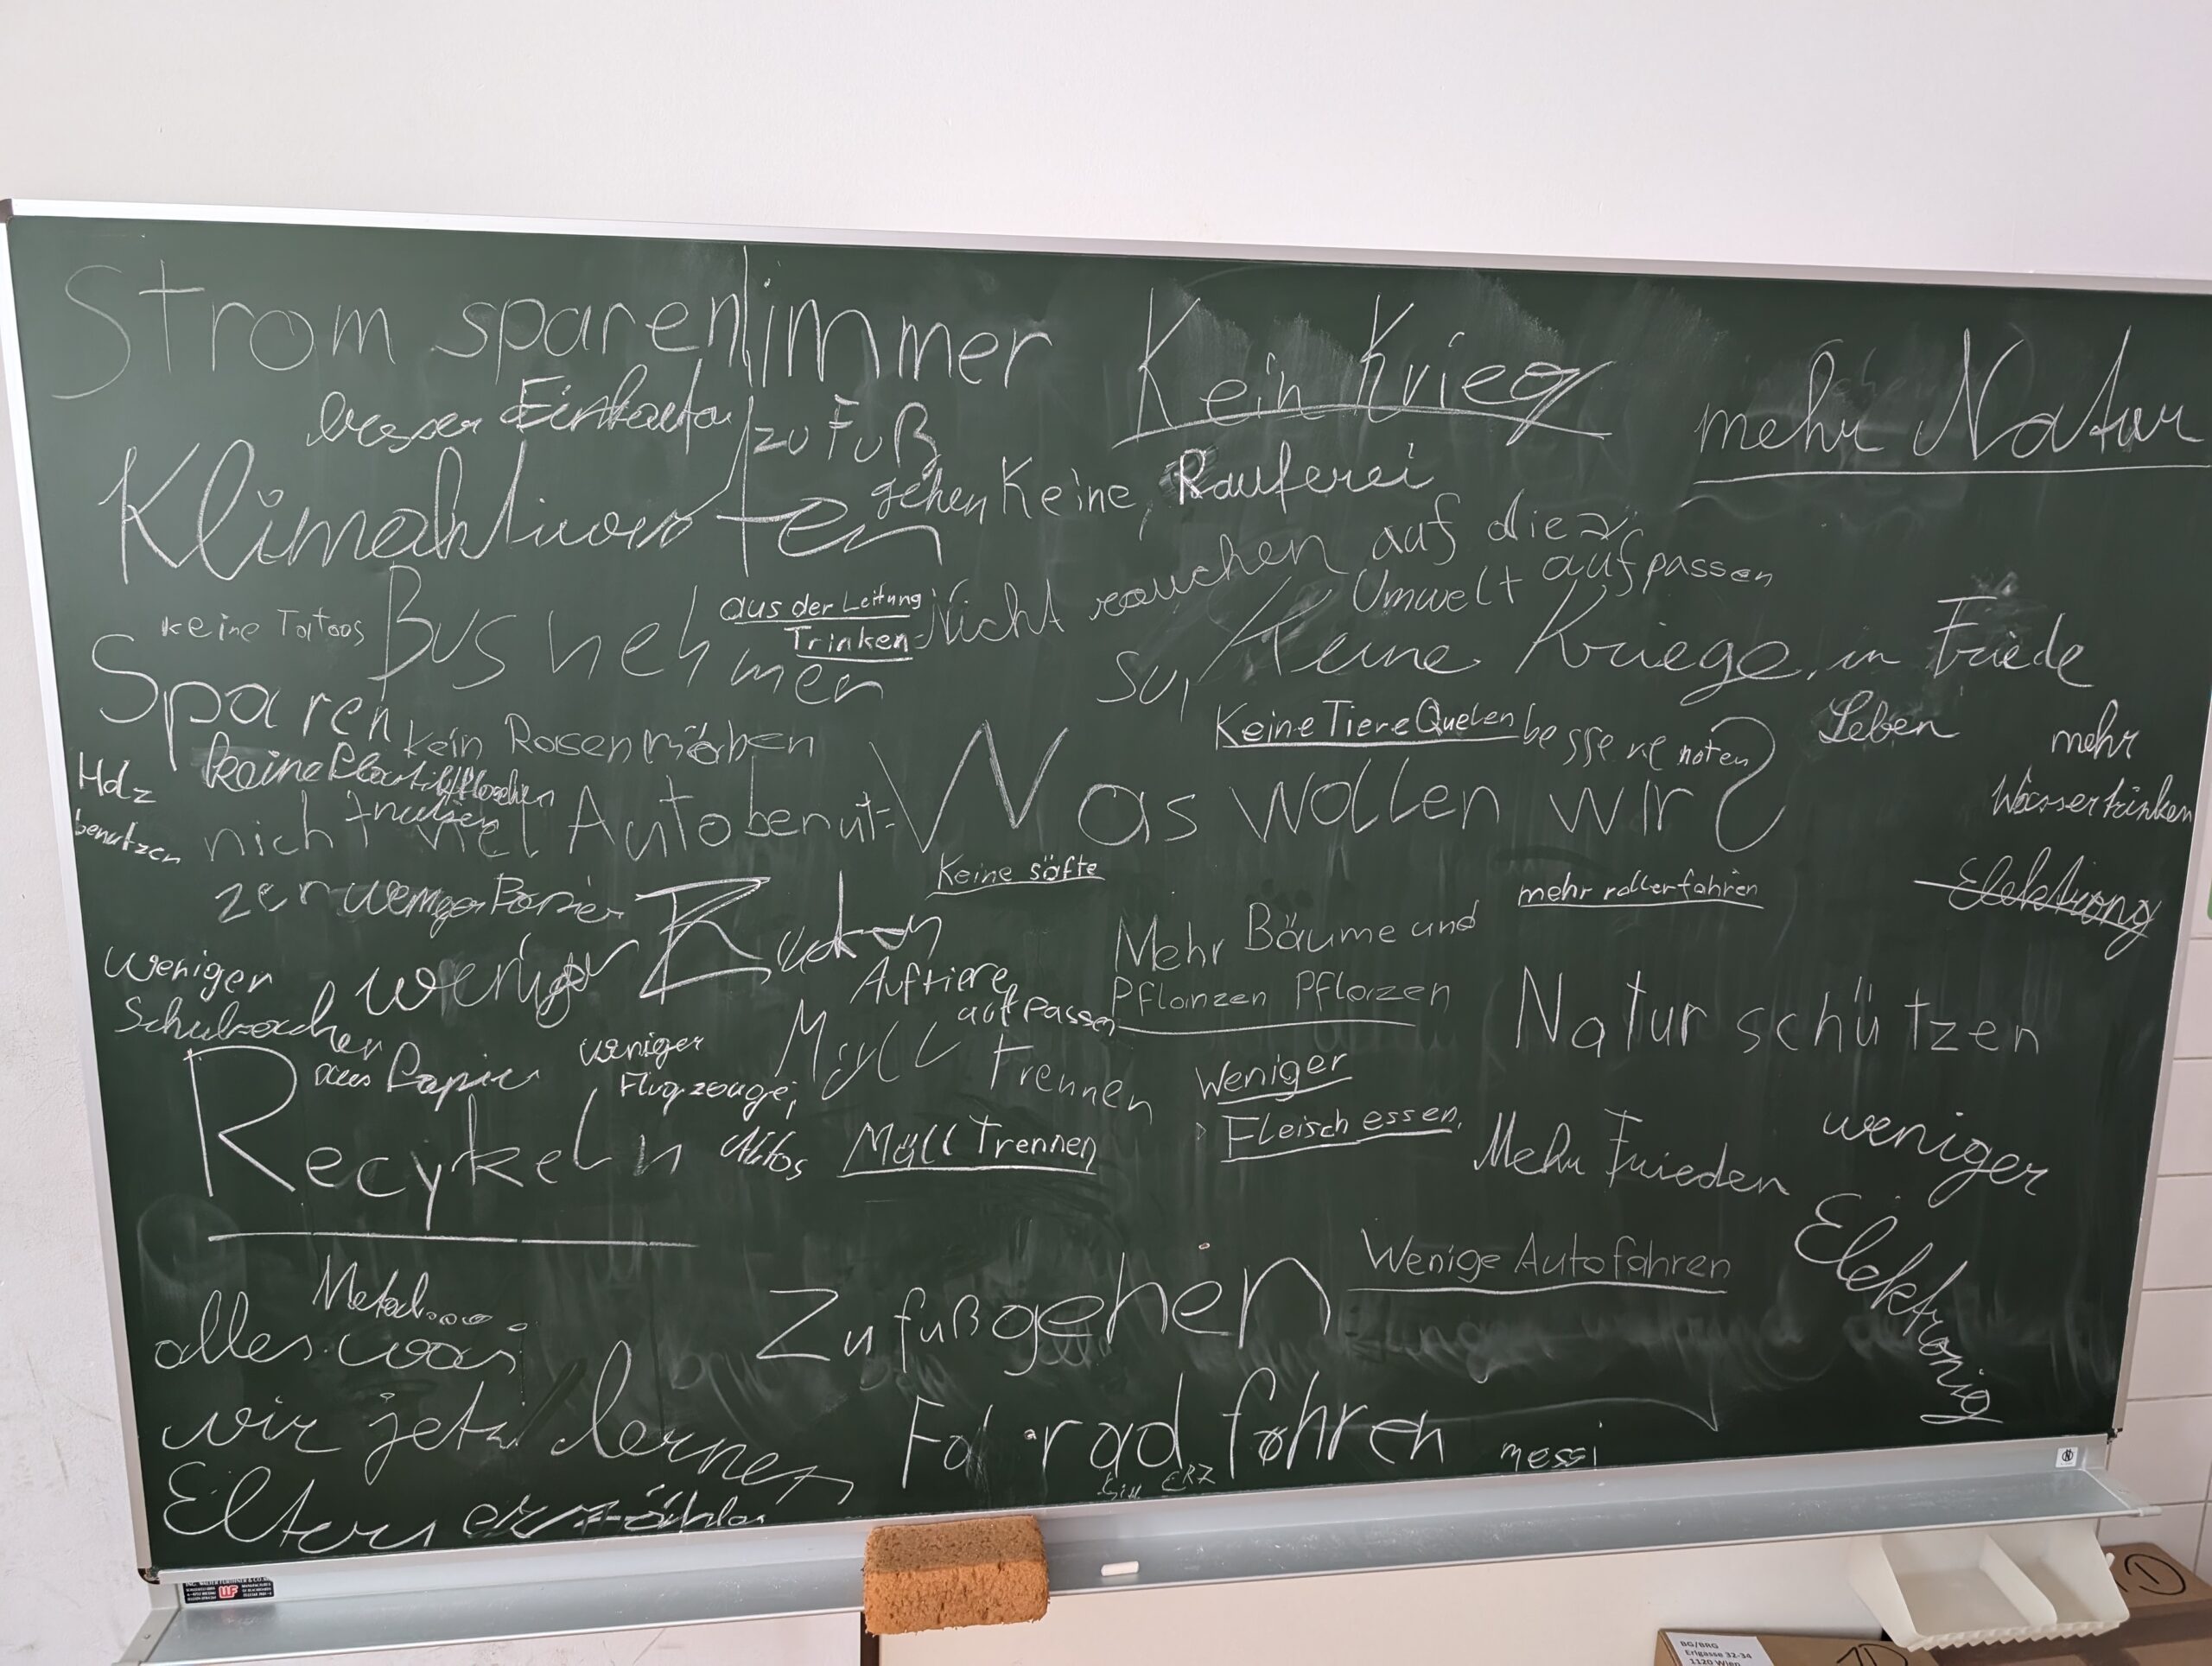 Strom sparen immer
Kein Krieg
mehr Natur
besser Einkaufen
zu Fuß
gehen
Keine Rauferei
Klimaaktivisten
Nicht rauchen
auf die
Umwelt aufpassen
keine Tatoos
Bus neh
men
aus der Leitung
Trinken
Keine Kriege, in Friede
Leben
Sparen
kein Rasenmähen
Keine Tiere Quelen
bessere noten
mehr
Wassertrinken
Holz
benutzen
keine Plastikflaschen
nutzen
nicht viel Auto benut=
zen
Was wollen wir?
weniger Papier
Keine säfte
mehr rollerfahren
Elektrong
weniger
Auf tiere
aufpassen
Mehr Bäume und
Pflanzen Pflazen
Natur schützen
weniger
Schulsachen
aus Papier
weniger
Flugzeuge,
Autos
Müll Trennen
Müll Trennen
Recykeln
Weniger
Fleisch essen.
Mehr Frieden
weniger
Elektronig
Wenige Autofahren
Zu fuß gehen
alles was
wir jetzt lernen
Eltern erzählen
Fahrrad fahren
messi
LLF
BG/BRG
Erlgasse 32-34
1120 Wien
1D